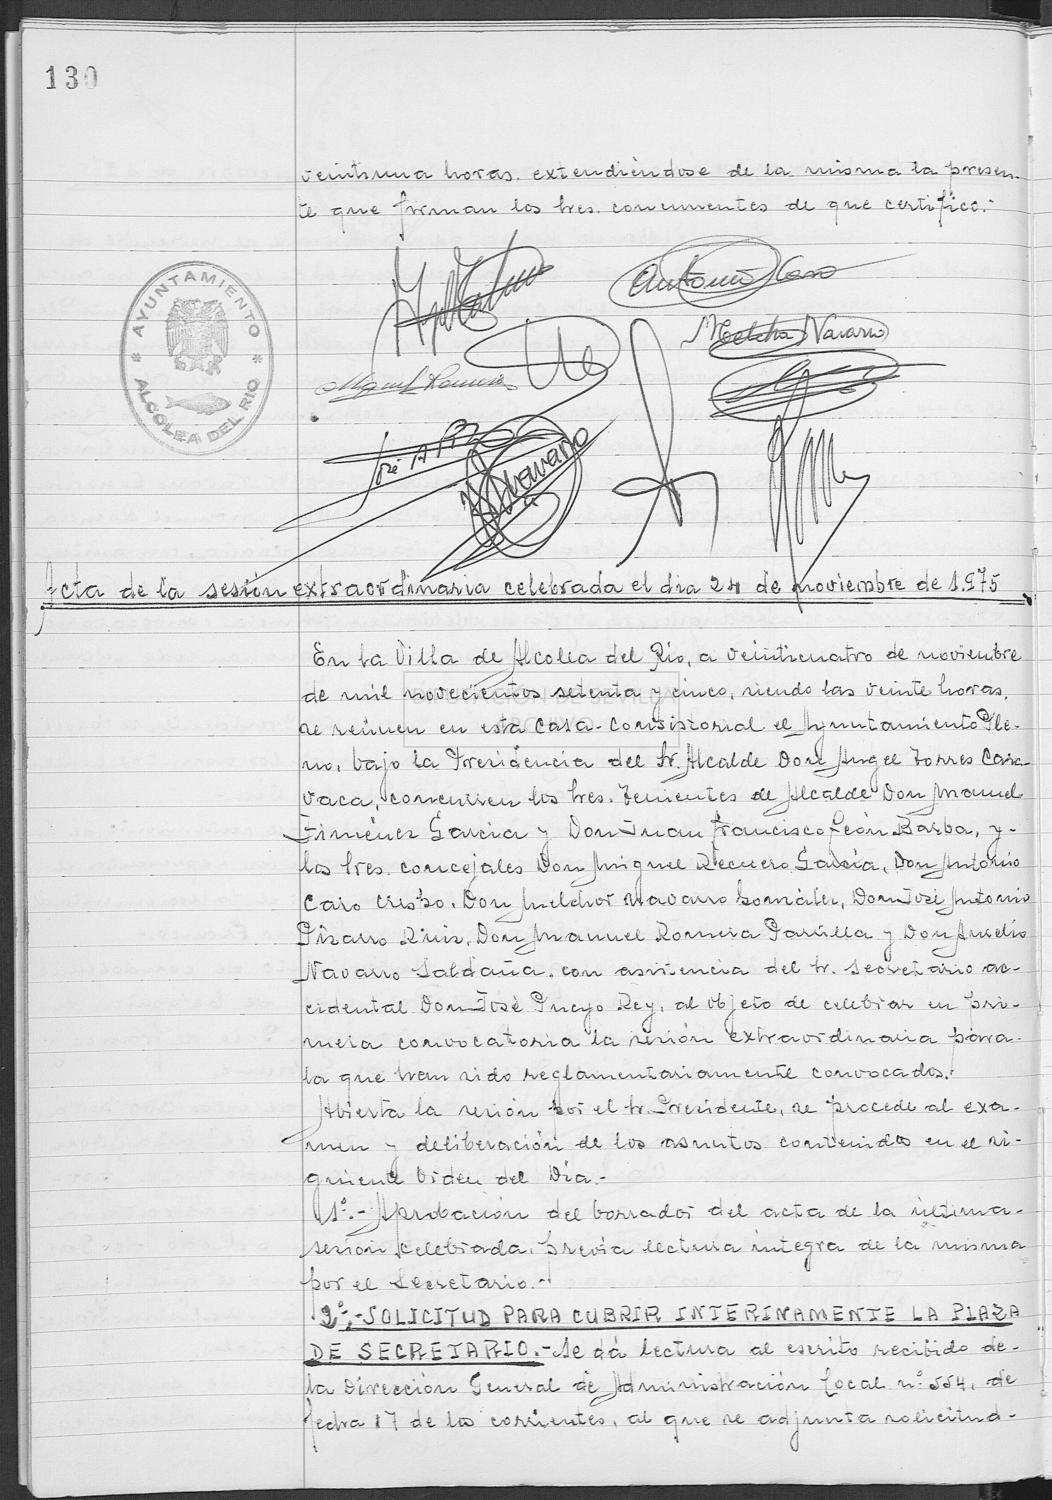 130
veintiuna horas. extendiéndose de la misma la presen-
te que firman los Sres. concurrentes de que certifico.-
AYUNTAMIENTO
ALCOLEA DEL RIO
Antonio Caro
Melchor Navarro
Miguel Recuero
José A. P.
A. Navarro
Acta de la sesión extraordinaria celebrada el dia 24 de noviembre de 1.975
En la Villa de Alcolea del Rio, a veinticuatro de noviembre
de mil novecientos setenta y cinco, siendo las veinte horas,
DIPUTACIÓN DE SEVILLA
se reúnen en esta Casa-Consistorial el Ayuntamiento Ple-
no, bajo la Presidencia del Sr. Alcalde Don Angel Torres Cara-
vaca, concurren los Sres. Tenientes de Alcalde Don Manuel
Jiménez García y Don Juan Francisco León Barba, y-
los Sres. concejales Don Miguel Recuero García, Don Antonio
Caro Crespo, Don Melchor Navarro González, Don José Antonio
Pizarro Ruiz, Don Manuel Romera Parrilla y Don Aurelio
Navarro Saldaña. con asistencia del Sr. Secretario ac-
cidental Don José Pueyo Rey, al objeto de celebrar en pri-
mera convocatoria la sesión extraordinaria para-
la que han sido reglamentariamente convocados.-
Abierta la sesión por el Sr. Presidente, se procede al exa-
men y deliberación de los asuntos contenidos en el si-
guiente Orden del Día.-
1º.- Aprobación del borrador del acta de la última-
sesión celebrada, previa lectura integra de la misma
por el Secretario.-
2º.-SOLICITUD PARA CUBRIR INTERINAMENTE LA PLAZA
DE SECRETARIO.- Se dá lectura al escrito recibido de-
la Dirección General de Administración Local nº 554, de
fecha 17 de los corrientes, al que se adjunta solicitud-